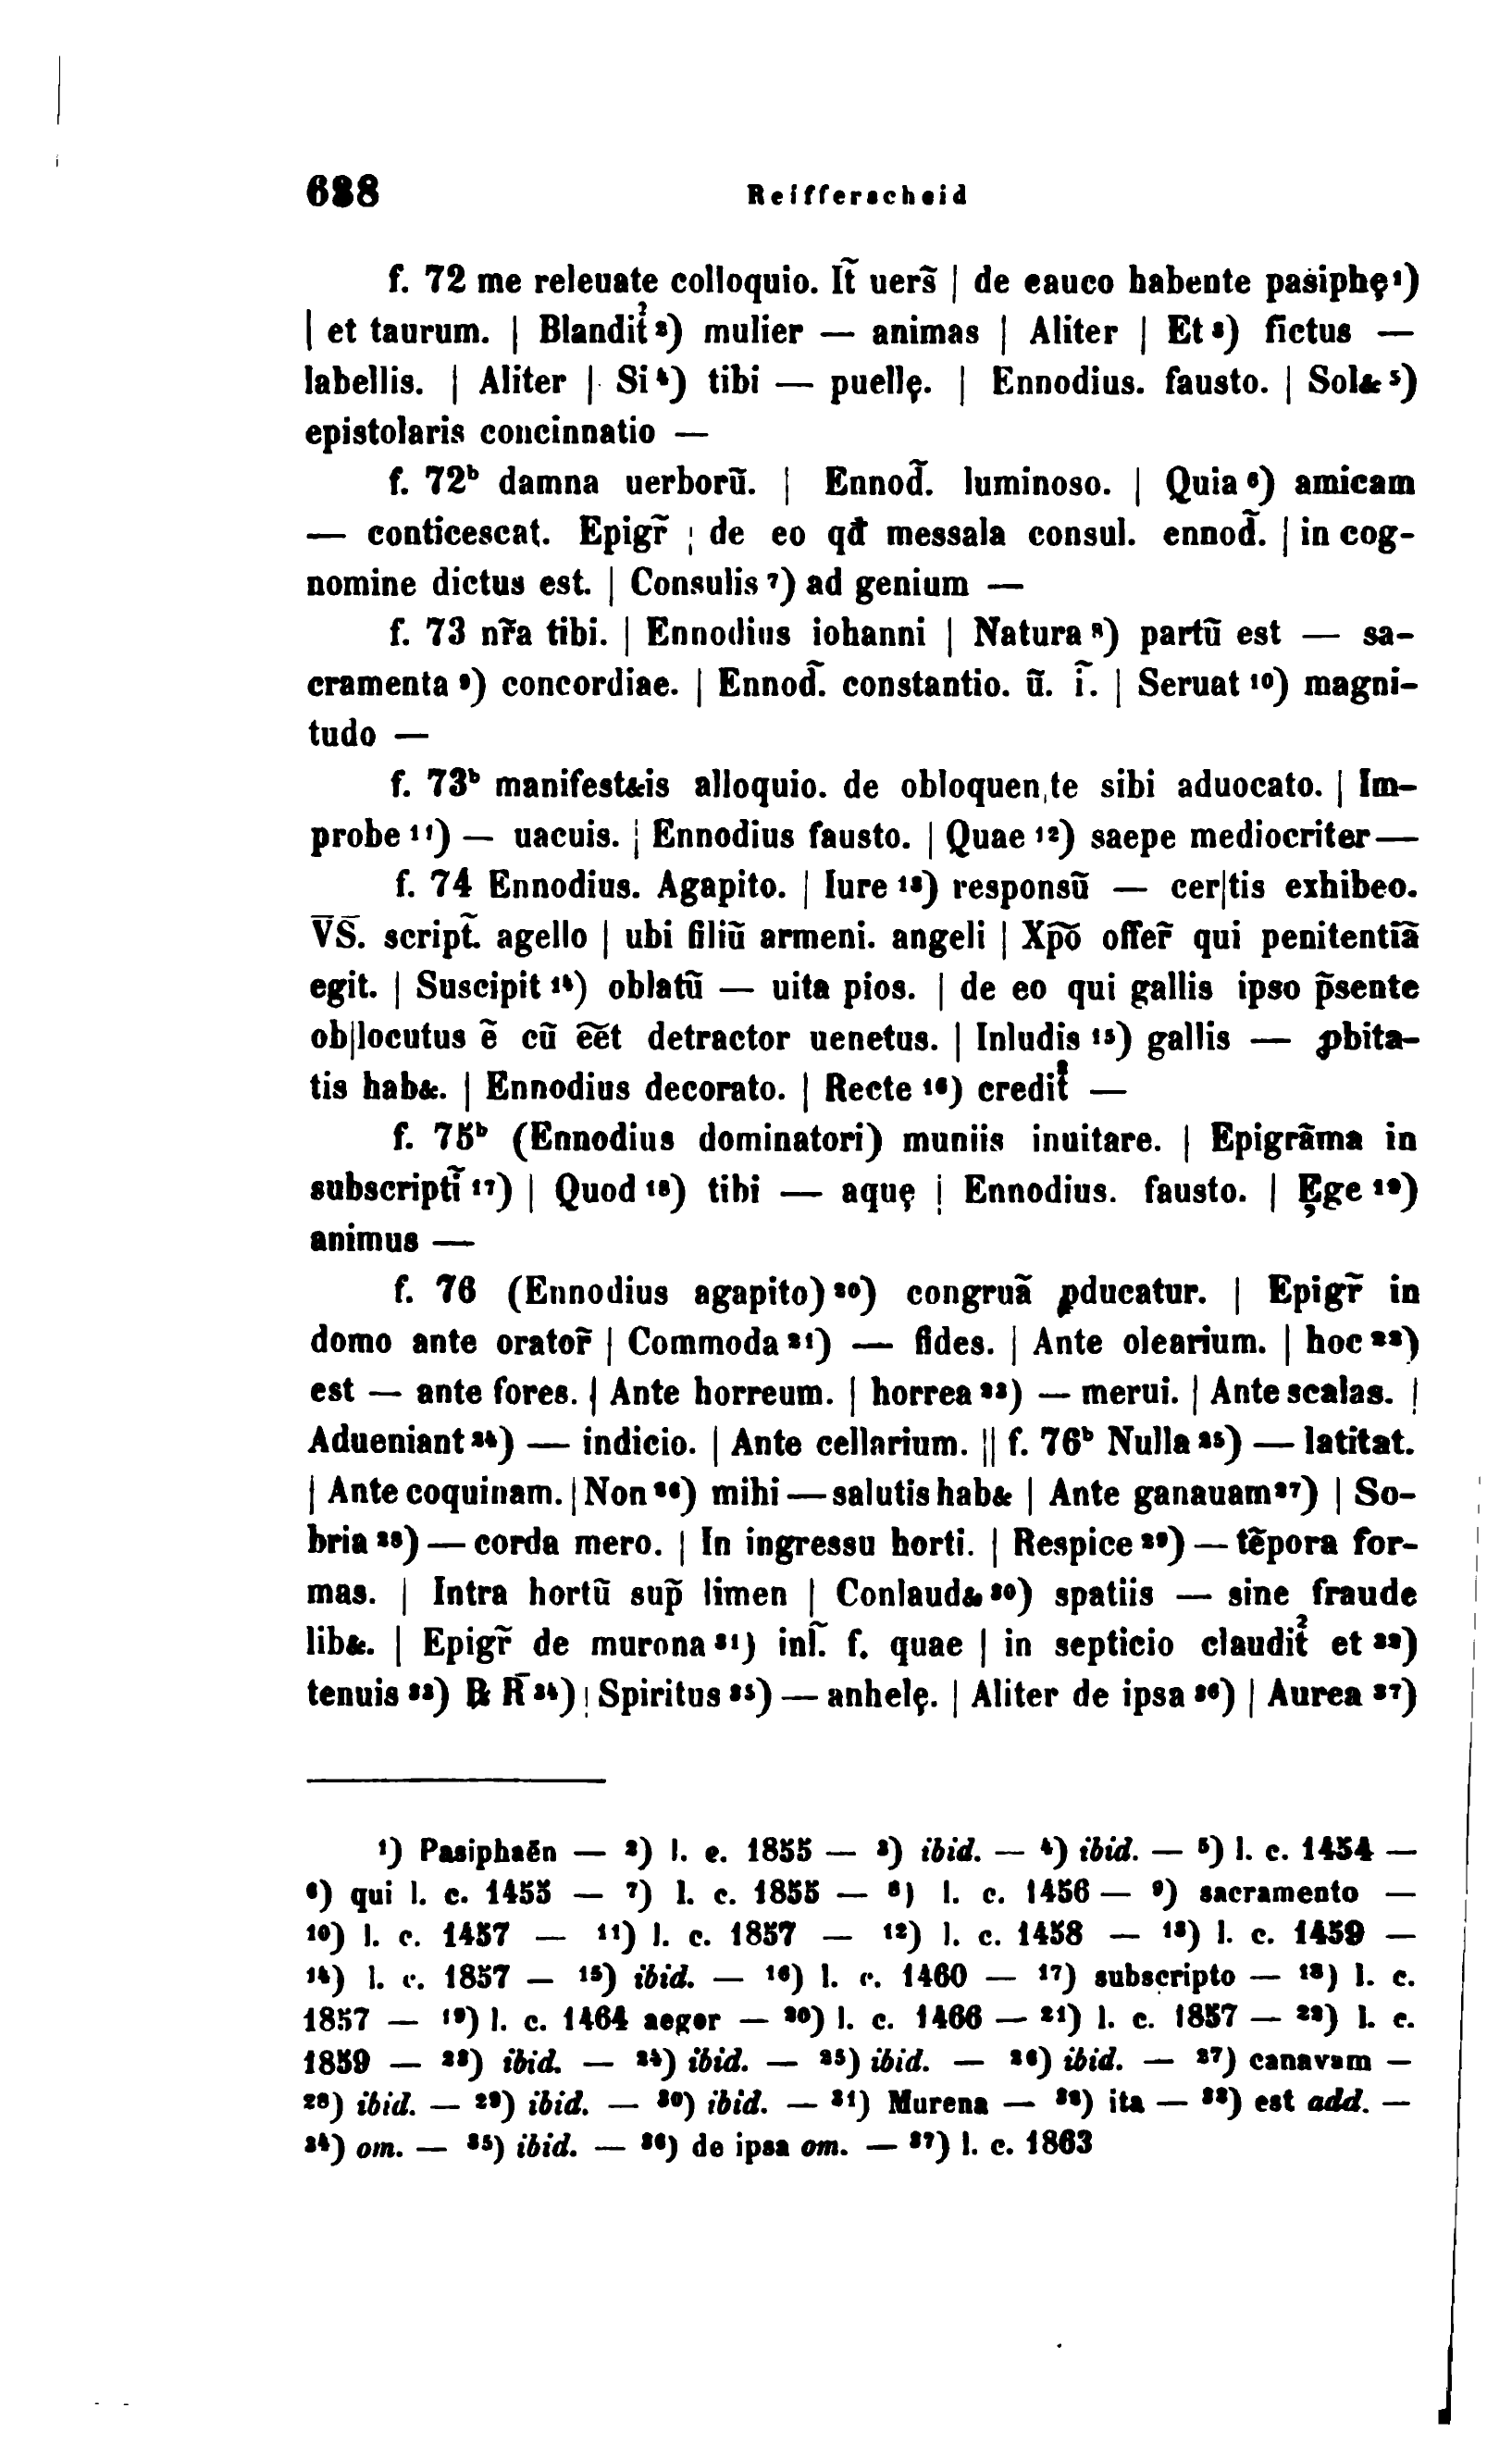 688 Reifferscheid
f. 72 me releuate colloquio. It̃ uers̃ | de eauco habente pasiphę¹)
| et taurum. | Blandit̉ ²) mulier — animas | Aliter | Et ³) fictus —
labellis. | Aliter | Si ⁴) tibi — puellę. | Ennodius. fausto. | Sol& ⁵)
epistolaris concinnatio —
f. 72ᵇ damna uerborũ. | Ennod̃. luminoso. | Quia ⁶) amicam
— conticescat. Epigr̃ ¦ de eo qđ messala consul. ennod̃. | in cog-
nomine dictus est. | Consulis ⁷) ad genium —
f. 73 nr̃a tibi. | Ennodius iohanni | Natura ⁸) partũ est — sa-
cramenta ⁹) concordiae. | Ennod̃. constantio. ũ. ĩ. | Seruat ¹⁰) magni-
tudo —
f. 73ᵇ manifest&is alloquio. de obloquen,te sibi aduocato. | Im-
probe ¹¹) — uacuis. ¦ Ennodius fausto. | Quae ¹²) saepe mediocriter —
f. 74 Ennodius. Agapito. | Iure ¹³) responsũ — cer|tis exhibeo.
V̅S̅. script̃. agello | ubi filiũ armeni. angeli | Xp̃õ offer̃ qui penitentĩã
egit. | Suscipit ¹⁴) oblatũ — uita pios. | de eo qui gallis ipso p̃sente
ob|locutus ẽ cũ ẽẽt detractor uenetus. | Inludis ¹⁵) gallis — ꝓbita-
tis hab&. | Ennodius decorato. | Recte ¹⁶) credit̉ —
f. 75ᵇ (Ennodius dominatori) muniis inuitare. | Epigrãma in
subscriptĩ ¹⁷) | Quod ¹⁸) tibi — aquę ¦ Ennodius. fausto. | Ęge ¹⁹)
animus —
f. 76 (Ennodius agapito) ²⁰) congruã ꝓducatur. | Epigr̃ in
domo ante orator̃ | Commoda ²¹) — fides. | Ante olearium. | hoc ²²)
est — ante fores. | Ante horreum. | horrea ²³) — merui. | Ante scalas. |
Adueniant ²⁴) — indicio. | Ante cellarium. || f. 76ᵇ Nulla ²⁵) — latitat.
| Ante coquinam. | Non ²⁶) mihi — salutis hab& | Ante ganauam ²⁷) | So-
bria ²⁸) — corda mero. | In ingressu horti. | Respice ²⁹) — tẽpora for-
mas. | Intra hortũ sup̃ limen | Conlaud& ³⁰) spatiis — sine fraude
lib&. | Epigr̃ de murona ³¹) inl̃. f. quae | in septicio claudit̉ et ³²)
tenuis ³³) R̅ ³⁴) ¦ Spiritus ³⁵) — anhelę. | Aliter de ipsa ³⁶) | Aurea ³⁷)
¹) Pasiphaën — ²) l. c. 1855 — ³) ibid. — ⁴) ibid. — ⁵) l. c. 1454 —
⁶) qui l. c. 1455 — ⁷) l. c. 1855 — ⁸) l. c. 1456 — ⁹) sacramento —
¹⁰) l. c. 1457 — ¹¹) l. c. 1857 — ¹²) l. c. 1458 — ¹³) l. c. 1459 —
¹⁴) l. c. 1857 — ¹⁵) ibid. — ¹⁶) l. c. 1460 — ¹⁷) subscripto — ¹⁸) l. c.
1857 — ¹⁹) l. c. 1464 aeger — ²⁰) l. c. 1466 — ²¹) l. c. 1857 — ²²) l. c.
1859 — ²³) ibid. — ²⁴) ibid. — ²⁵) ibid. — ²⁶) ibid. — ²⁷) canavam —
²⁸) ibid. — ²⁹) ibid. — ³⁰) ibid. — ³¹) Murena — ³²) ita — ³³) est add. —
³⁴) om. — ³⁵) ibid. — ³⁶) de ipsa om. — ³⁷) l. c. 1863